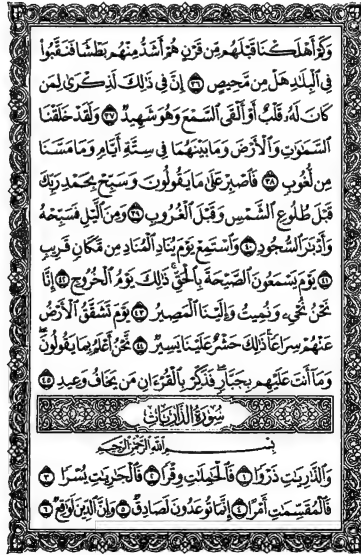 وَكَمْ أَهْلَكْنَا قَبْلَهُم مِّن قَرْنٍ هُمْ أَشَدُّ مِنْهُم بَطْشًا فَنَقَّبُوا۟
فِى ٱلْبِلَٰدِ هَلْ مِن مَّحِيصٍ ٣٦ إِنَّ فِى ذَٰلِكَ لَذِكْرَىٰ لِمَن
كَانَ لَهُۥ قَلْبٌ أَوْ أَلْقَى ٱلسَّمْعَ وَهُوَ شَهِيدٌ ٣٧ وَلَقَدْ خَلَقْنَا
ٱلسَّمَٰوَٰتِ وَٱلْأَرْضَ وَمَا بَيْنَهُمَا فِى سِتَّةِ أَيَّامٍ وَمَا مَسَّنَا
مِن لُّغُوبٍ ٣٨ فَٱصْبِرْ عَلَىٰ مَا يَقُولُونَ وَسَبِّحْ بِحَمْدِ رَبِّكَ
قَبْلَ طُلُوعِ ٱلشَّمْسِ وَقَبْلَ ٱلْغُرُوبِ ٣٩ وَمِنَ ٱلَّيْلِ فَسَبِّحْهُ
وَأَدْبَٰرَ ٱلسُّجُودِ ٤٠ وَٱسْتَمِعْ يَوْمَ يُنَادِ ٱلْمُنَادِ مِن مَّكَانٍ قَرِيبٍ
٤١ يَوْمَ يَسْمَعُونَ ٱلصَّيْحَةَ بِٱلْحَقِّ ذَٰلِكَ يَوْمُ ٱلْخُرُوجِ ٤٢ إِنَّا
نَحْنُ نُحْىِۦ وَنُمِيتُ وَإِلَيْنَا ٱلْمَصِيرُ ٤٣ يَوْمَ تَشَقَّقُ ٱلْأَرْضُ
عَنْهُمْ سِرَاعًا ذَٰلِكَ حَشْرٌ عَلَيْنَا يَسِيرٌ ٤٤ نَّحْنُ أَعْلَمُ بِمَا يَقُولُونَ
وَمَآ أَنتَ عَلَيْهِم بِجَبَّارٍ فَذَكِّرْ بِٱلْقُرْءَانِ مَن يَخَافُ وَعِيدِ ٤٥
سُورَةُ الذَّارِيَاتِ
بِسْمِ ٱللَّهِ ٱلرَّحْمَٰنِ ٱلرَّحِيمِ
وَٱلذَّٰرِيَٰتِ ذَرْوًا ١ فَٱلْحَٰمِلَٰتِ وِقْرًا ٢ فَٱلْجَٰرِيَٰتِ يُسْرًا ٣
فَٱلْمُقَسِّمَٰتِ أَمْرًا ٤ إِنَّمَا تُوعَدُونَ لَصَادِقٌ ٥ وَإِنَّ ٱلدِّينَ لَوَٰقِعٌ ٦